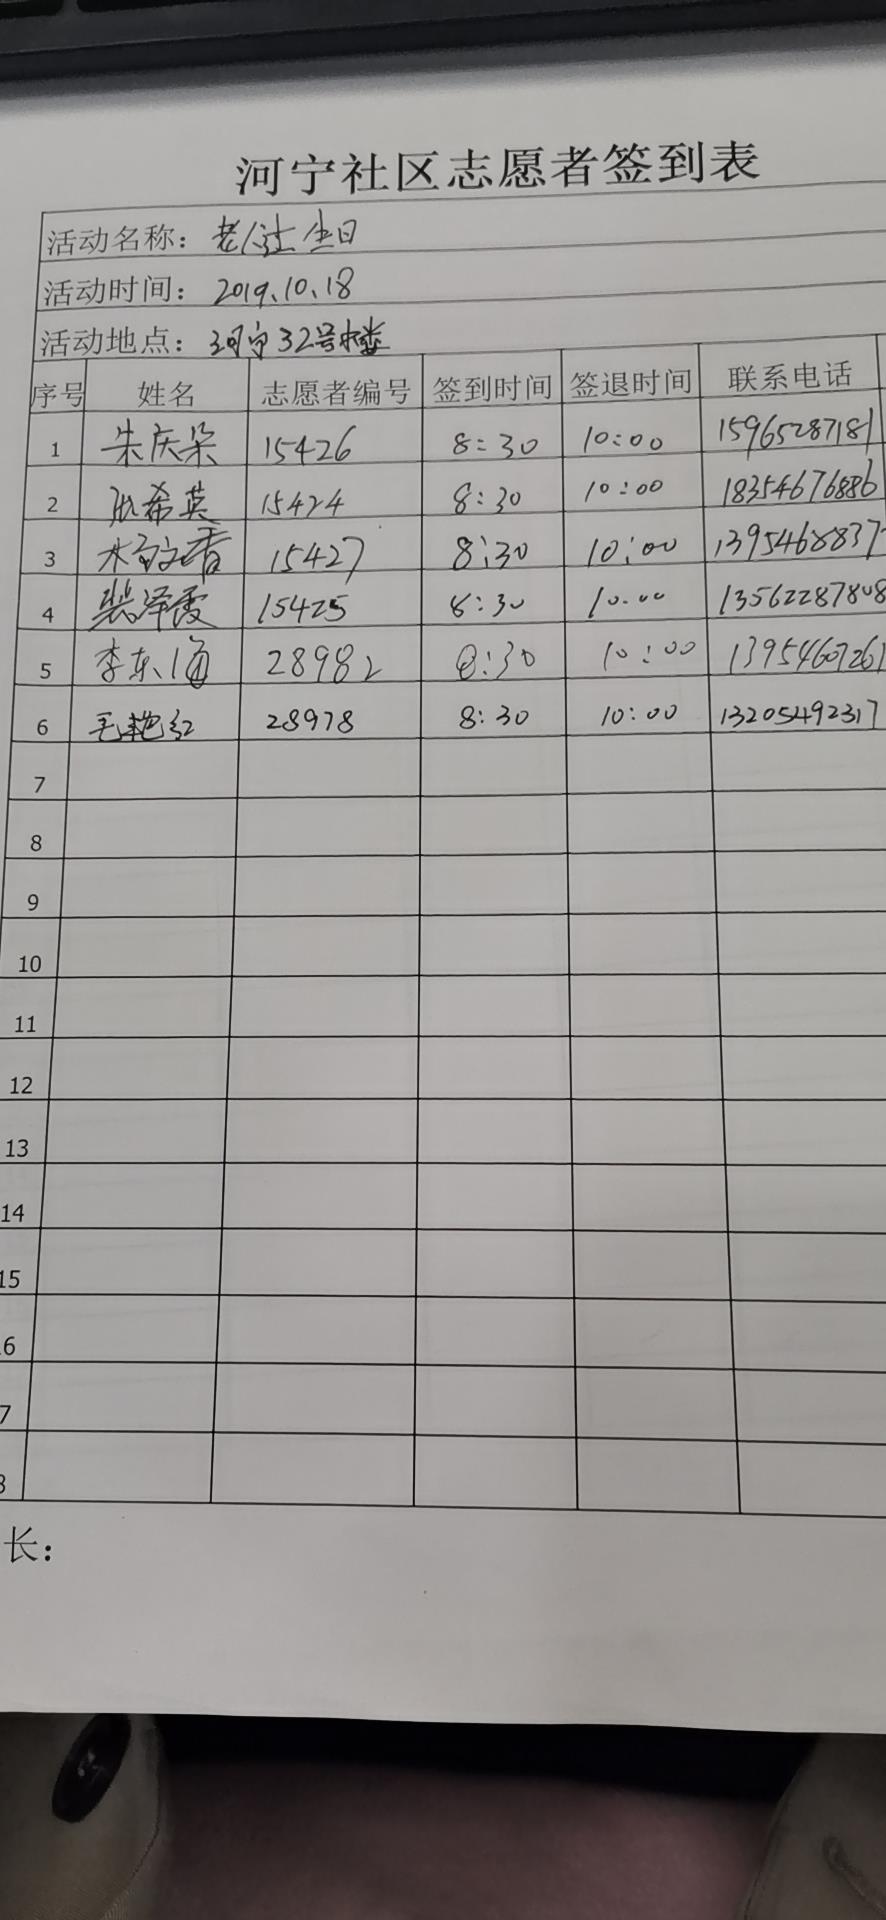 河宁社区志愿者签到表
活动名称：老人过生日
活动时间：2019.10.18
活动地点：河宁32号楼
序号 姓名 志愿者编号 签到时间 签退时间 联系电话
1 朱庆荣 15426 8:30 10:00 15965287181
2 希英 15424 8:30 10:00 18354676886
3 香 15427 8:30 10:00 1395468837
4 裴泽霞 15425 8:30 10:00 13562287808
5 李东海 28982 8:30 10:00 13954607261
6 毛艳红 28978 8:30 10:00 13205492317
7
8
9
10
11
12
13
14
15
6
7
8
长：